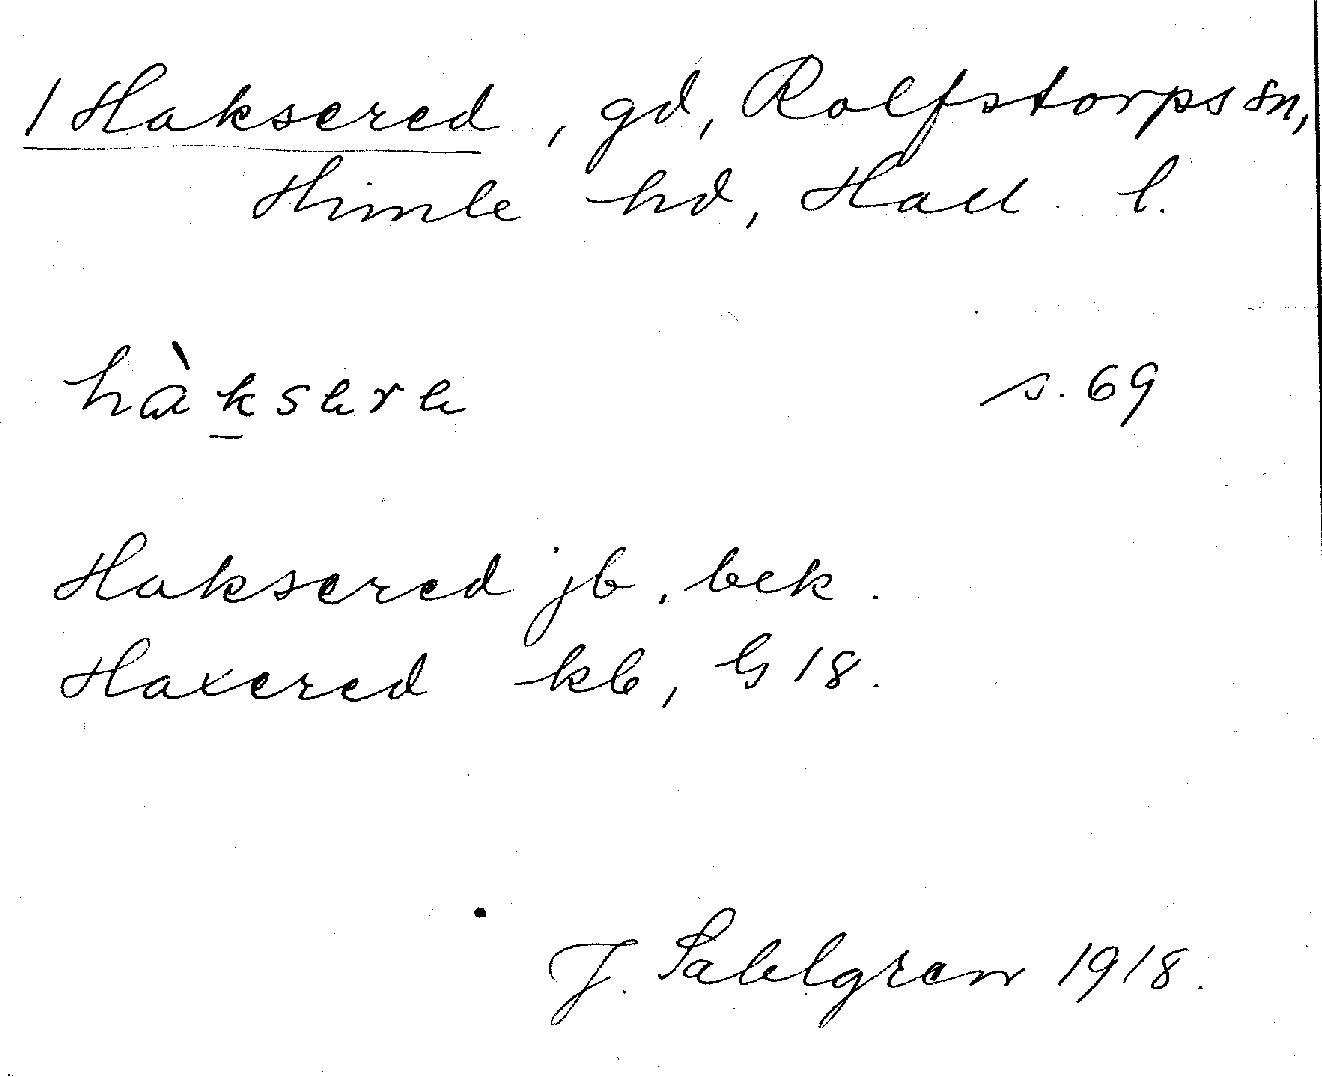 1 Haksered, gd, Rolfstorps sn,
Himle hd, Hall. l.
hàksara s. 69
Haksered jb, bek.
Haxered kb, G 18.
J. Sahlgren 1918.